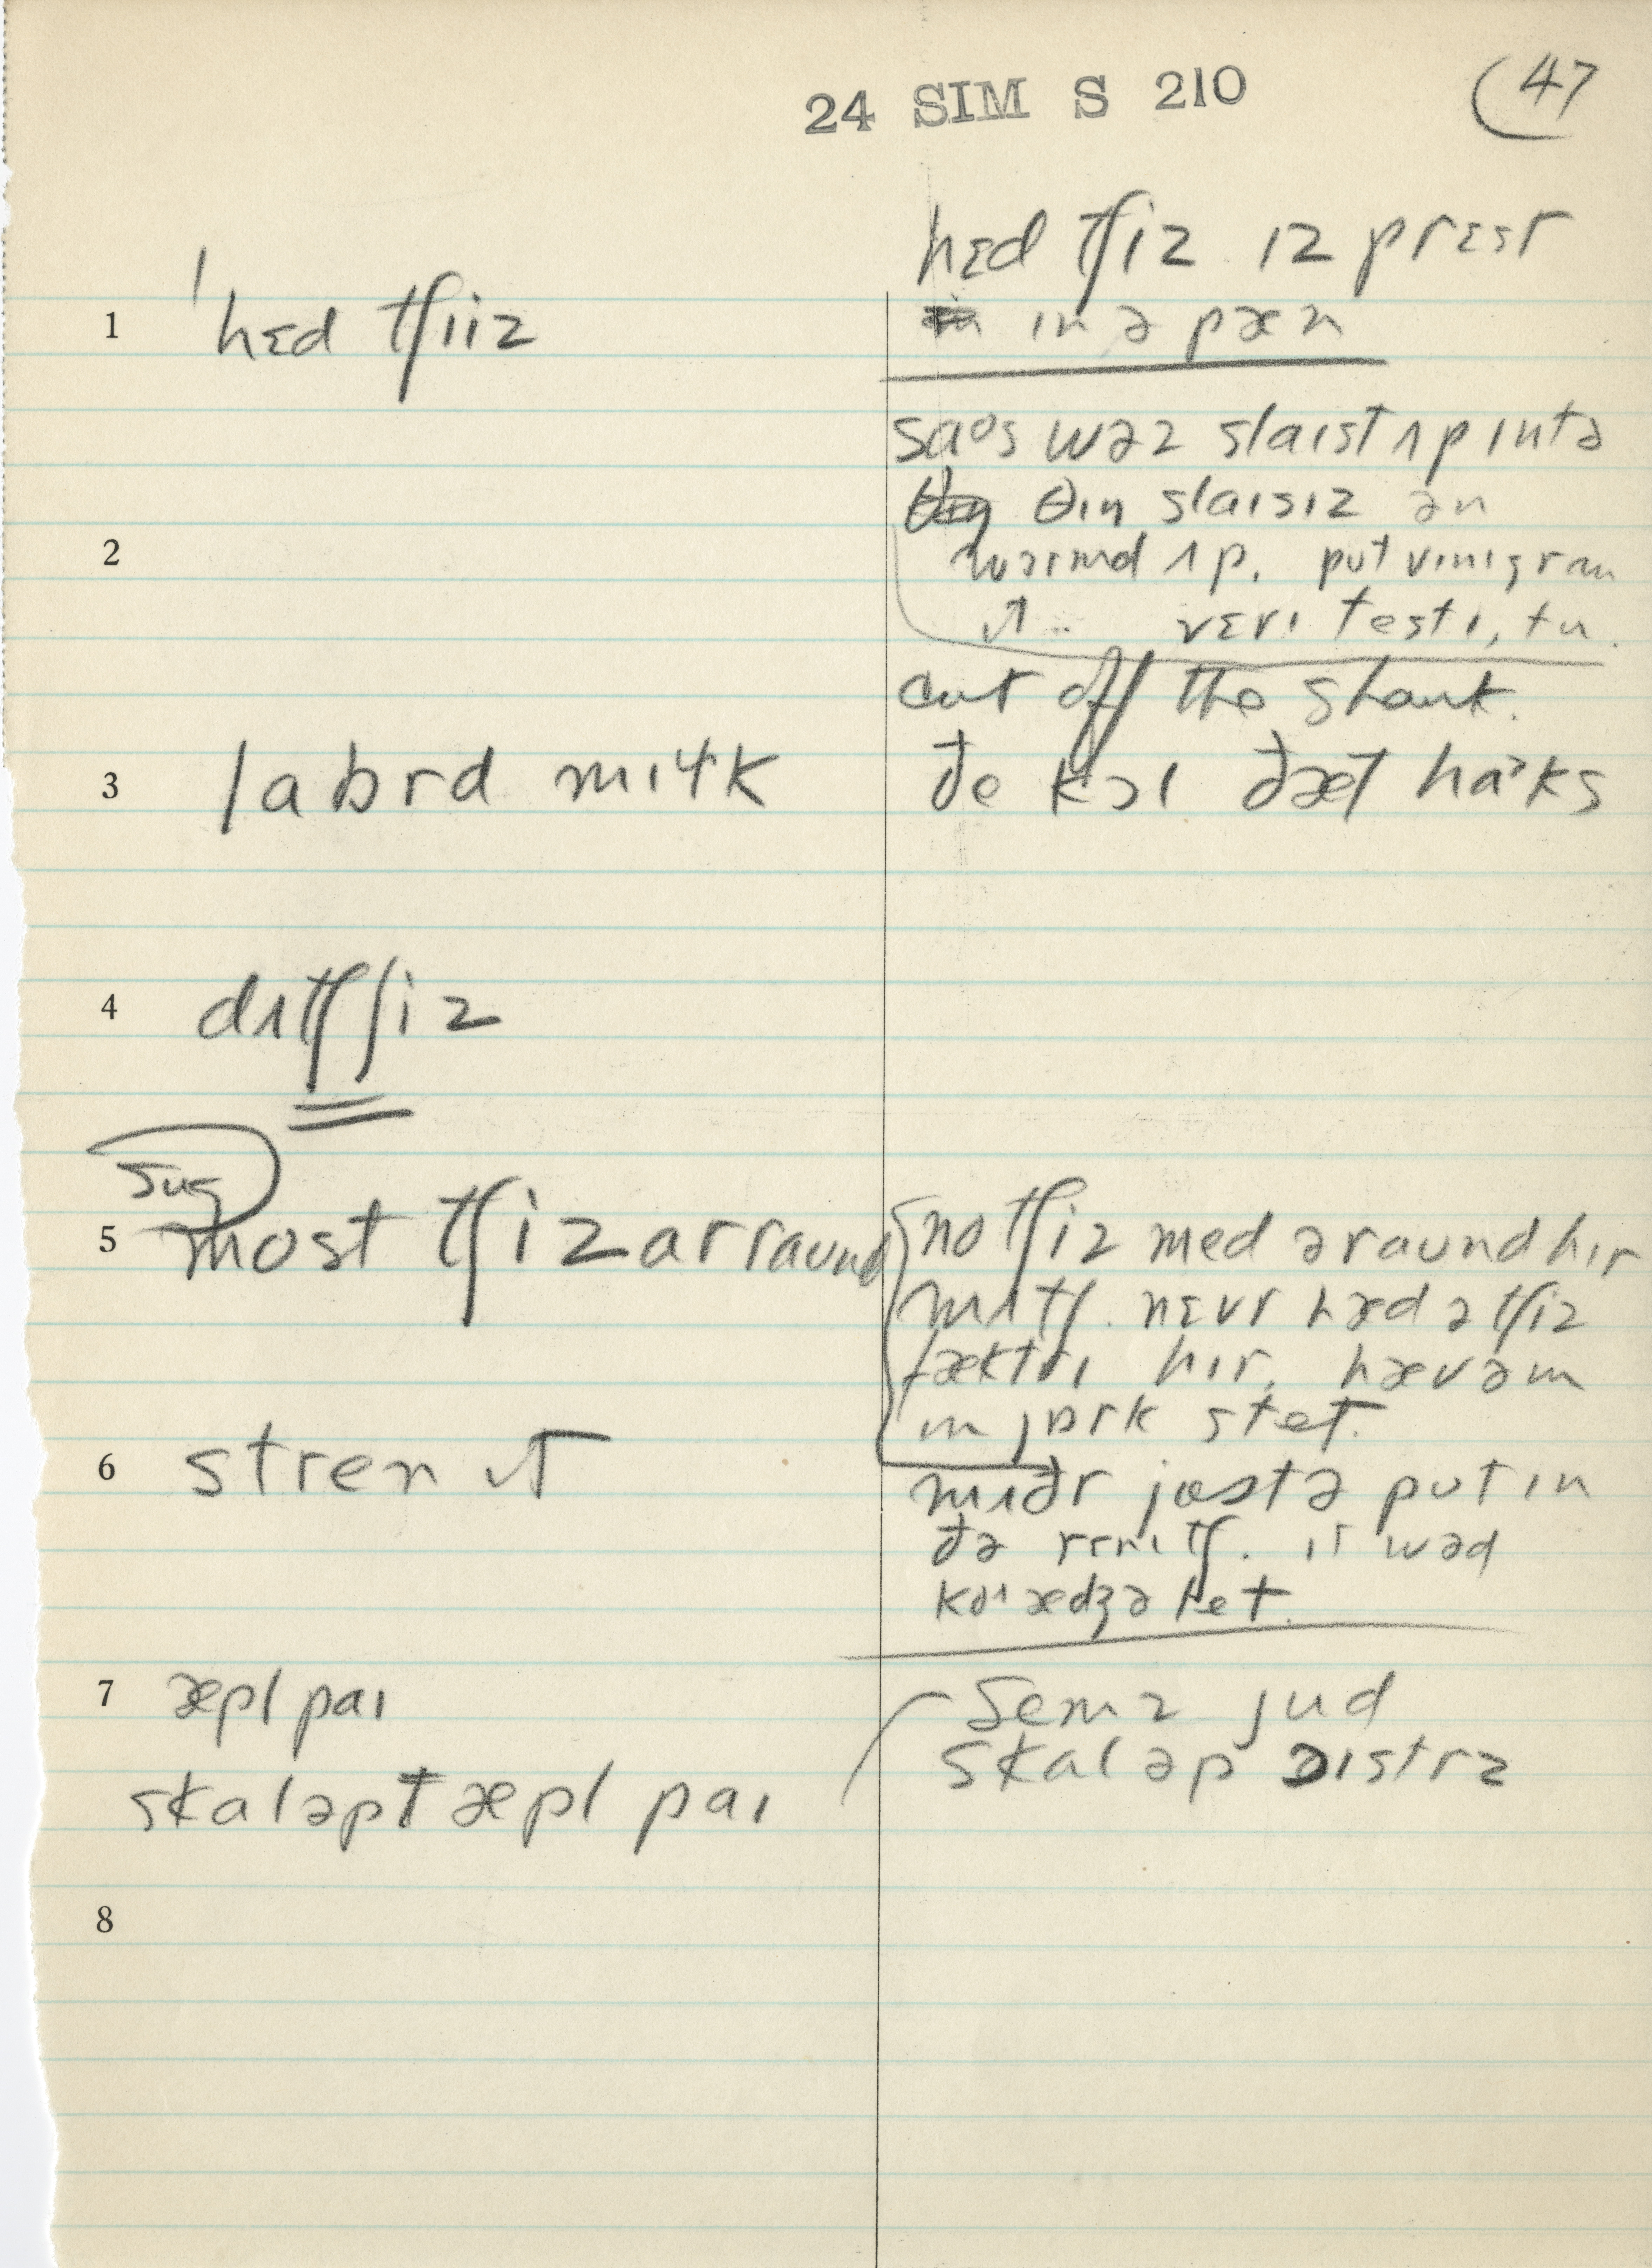 24 SIM S 210
47
1 ˈhɛd tʃiiz
hɛd tʃiz ɪz prɛst
ɪn ə pæn
2
saᵒs wəz slaɪst ʌp ɪntə
θɪn slaɪsɪz ən
wɔrmd ʌp. put vɪnɪgr an
ɪt .. vɛrɪ testɪ, tu.
cut off the shank.
3 labrd mɪɫk
ðe kɔl ðæt haᵊks
4 dʌtʃ tʃiz
sug
5 most tʃiz ar raund
no tʃiz med əraund hɪr
mʌtʃ. nɛvr hæd ə tʃiz
fæktrɪ hɪr. hæv əm
ɪn jɒrk stet.
6 stren ɪt
mʌðr justə put ɪn
ðə rɛnɪtʃ. ɪt wəd
kɔɪædʒəlet.
7 æpl paɪ
skaləpt æpl paɪ
semz jud
skaləp ɔɪstrz
8